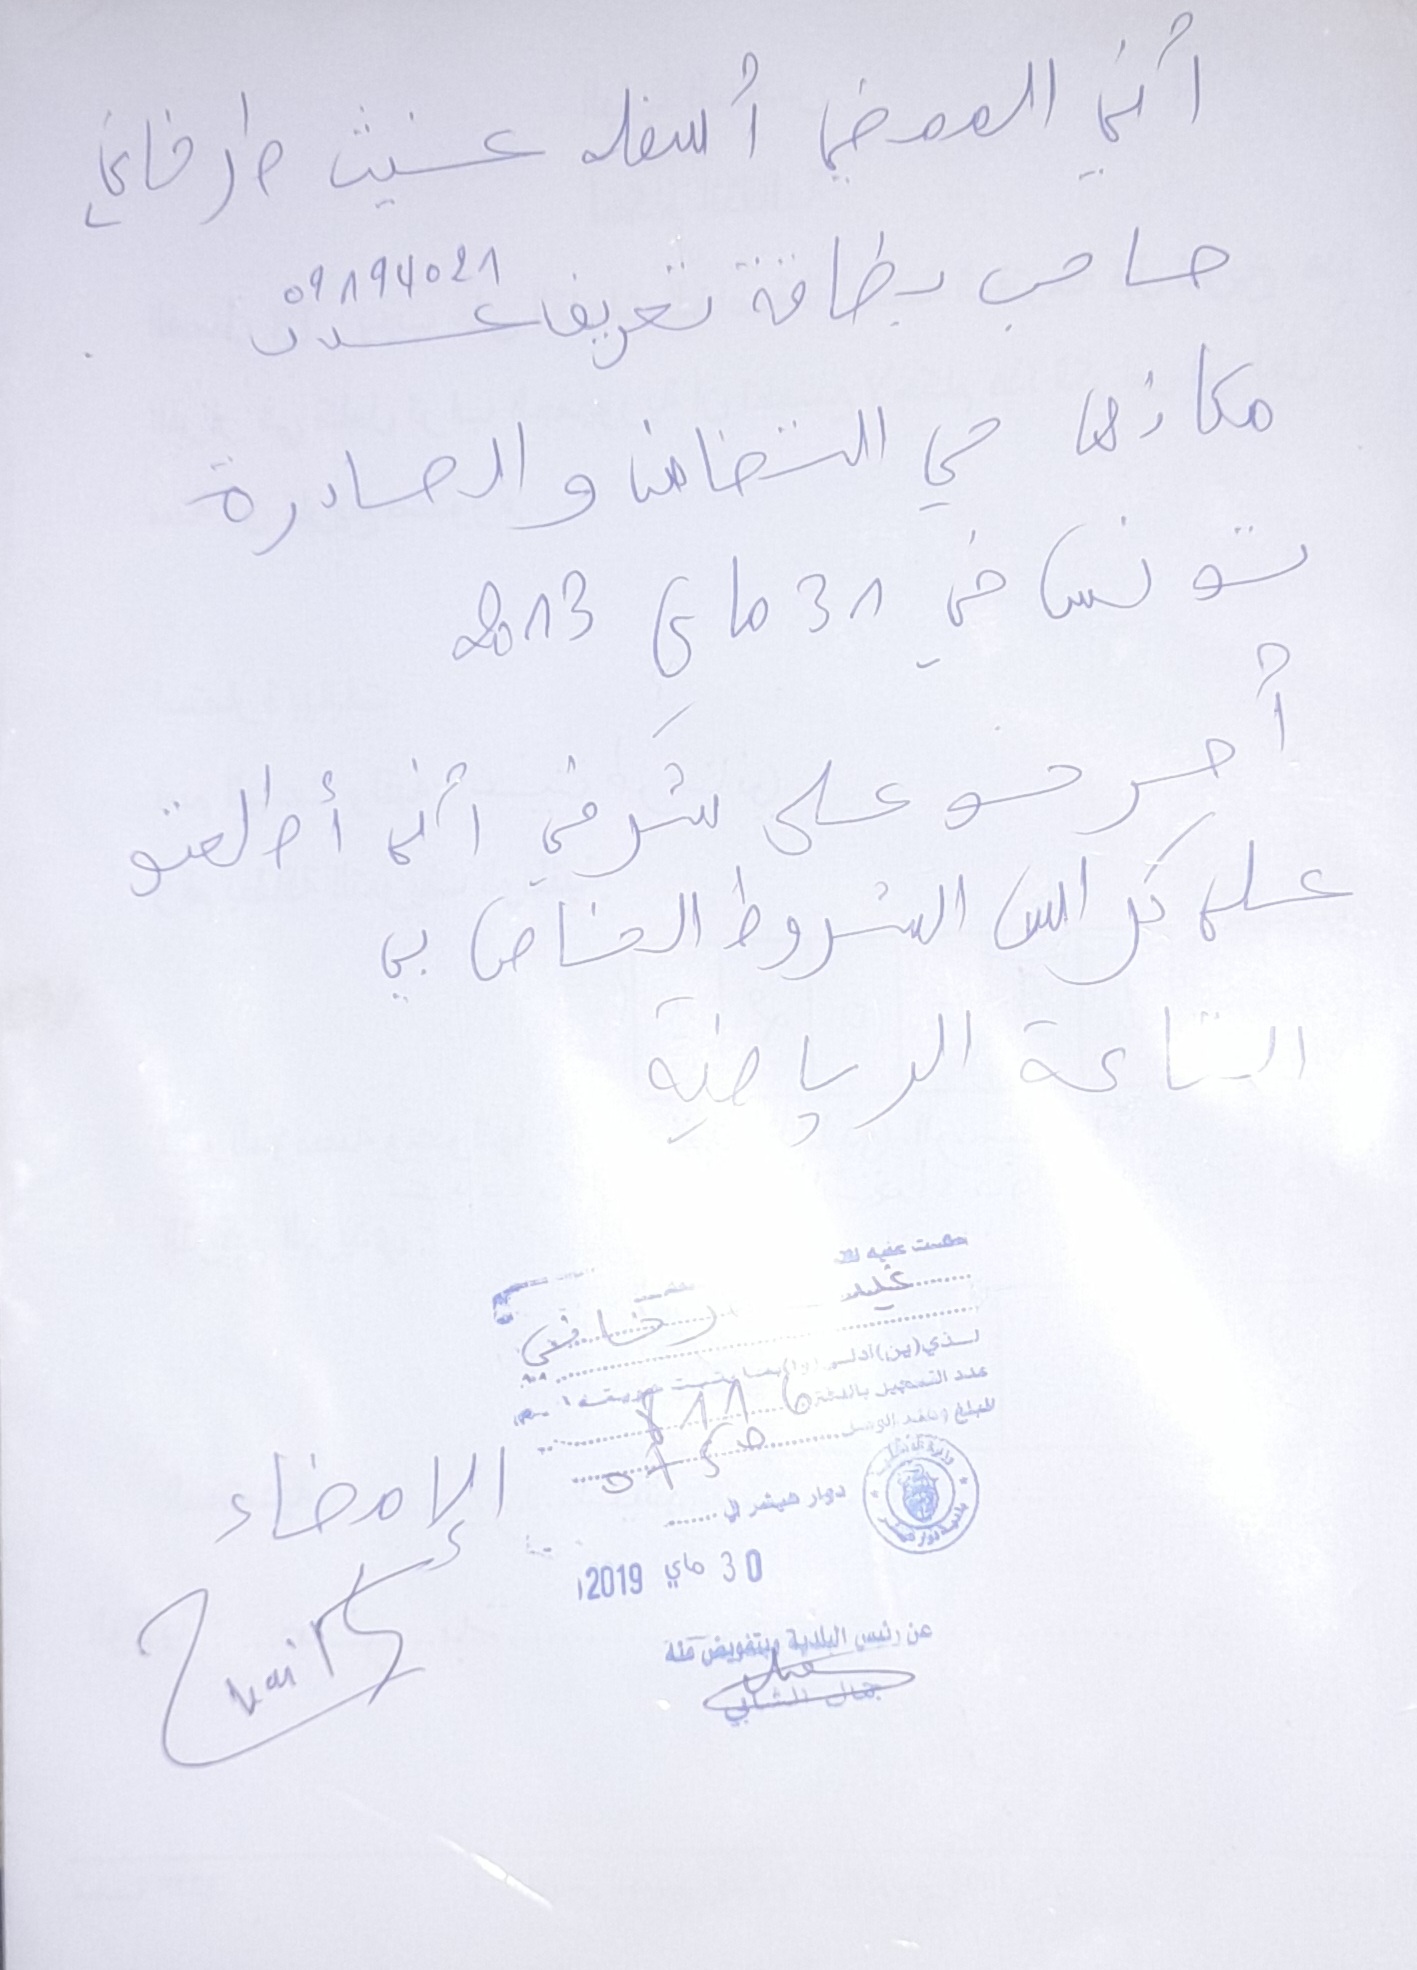 أني الممضي أسفله غيث طرخاني
صاحب بطاقة تعريف عدد 09194021
مكانها حي التضامن والصادرة
تونس في 31 ماي 2013
أصرحو على شرفي أني أطلعتو
على كراس الشروط الخاص بي
القاعة الرياضية
غيث
رخاني
لـذي(ين)أدلـى
عدد التسجيل بالدفتر
المبلغ وعدد الوصل
دوار هيشر في
30 ماي 2019
عن رئيس البلدية وبتفويض منه
جمال الشابي
الإمضاء